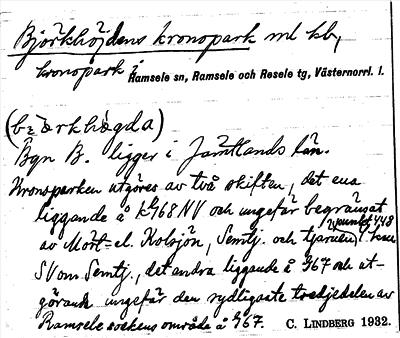 Björkhöjdens kronopark ml kb,
kronopark i
Ramsele sn, Ramsele och Resele tg, Västernorrl. l.
(bɛ̀ɔrkhøgda)
Bgn B. ligger i Jämtlands län.
Kronoparken utgöres av två skiften, det ena
liggande å k 968 NV och ungefär begränsat
av Mört- el. Kolsjön, Semtj. och tjärnen
punkt 448
SV om Semtj., det andra liggande å 967 och ut-
görande ungefär den sydligaste tredjedelen av
Ramsele sockens område å 967.
C. LINDBERG 1932.